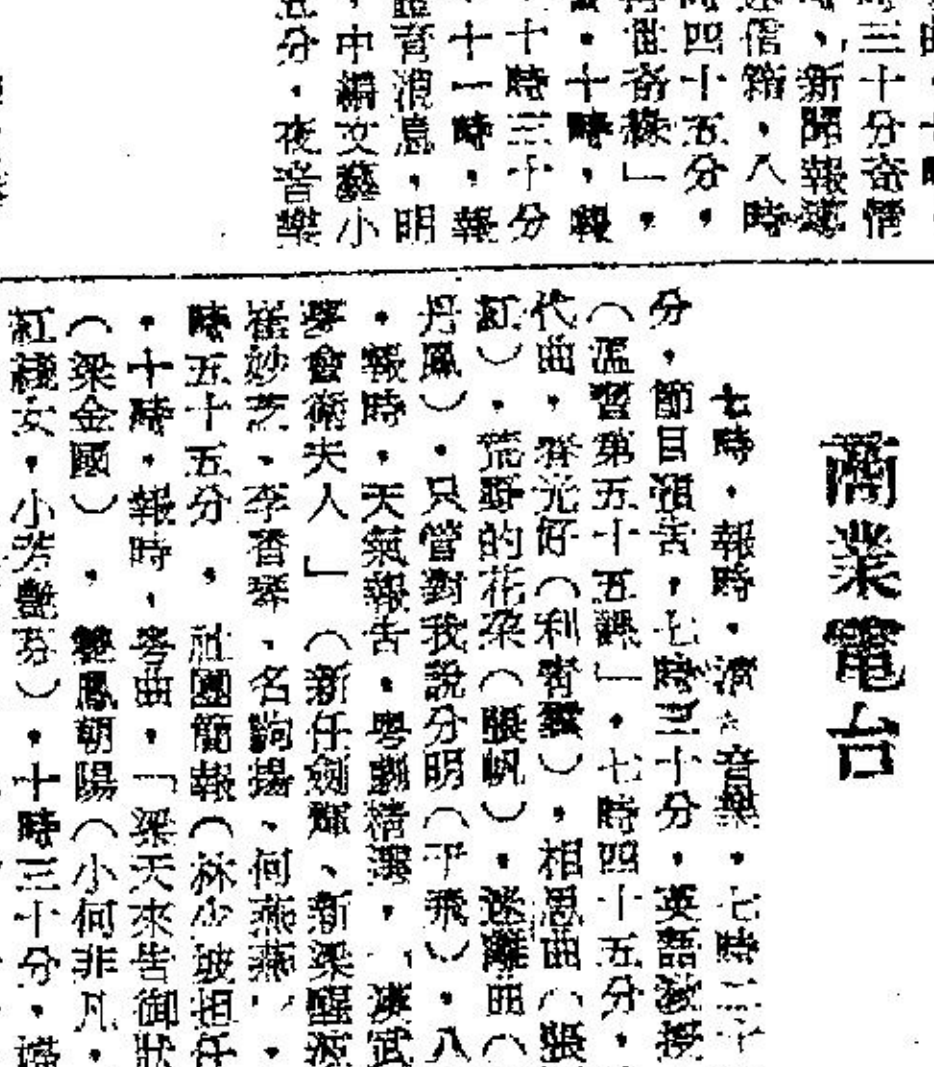 分
三十分奇情
、新聞報道
信箱，八時
四十五分，
世奇緣」，
・十時，報
十時三十分
十一時，報
體育消息，明
，中編文藝小
五分，夜音樂
商業電台
七時，報時，演　音樂，七時二十
分，節目預告，七時三十分，英語教授
（溫習第五十五課」，七時四十五分，
代曲，春光好（利青雲），相思曲（張
紅），荒野的花朶（張帆），迷離曲（
丹鳳），只管對我說分明（平飛），八
，報時，天氣報告，粵劇精選，漢武
夢會衛夫人」（新任劍輝、新梁醒波
崔妙芝、李香琴、名駒揚、何燕燕），
時五十五分，社團簡報（林少坡担任
，十時，報時，粵曲，「梁天來告御狀
（梁金國），雙鳳朝陽（小何非凡，
紅綫女，小芳艷芬），十時三十分，